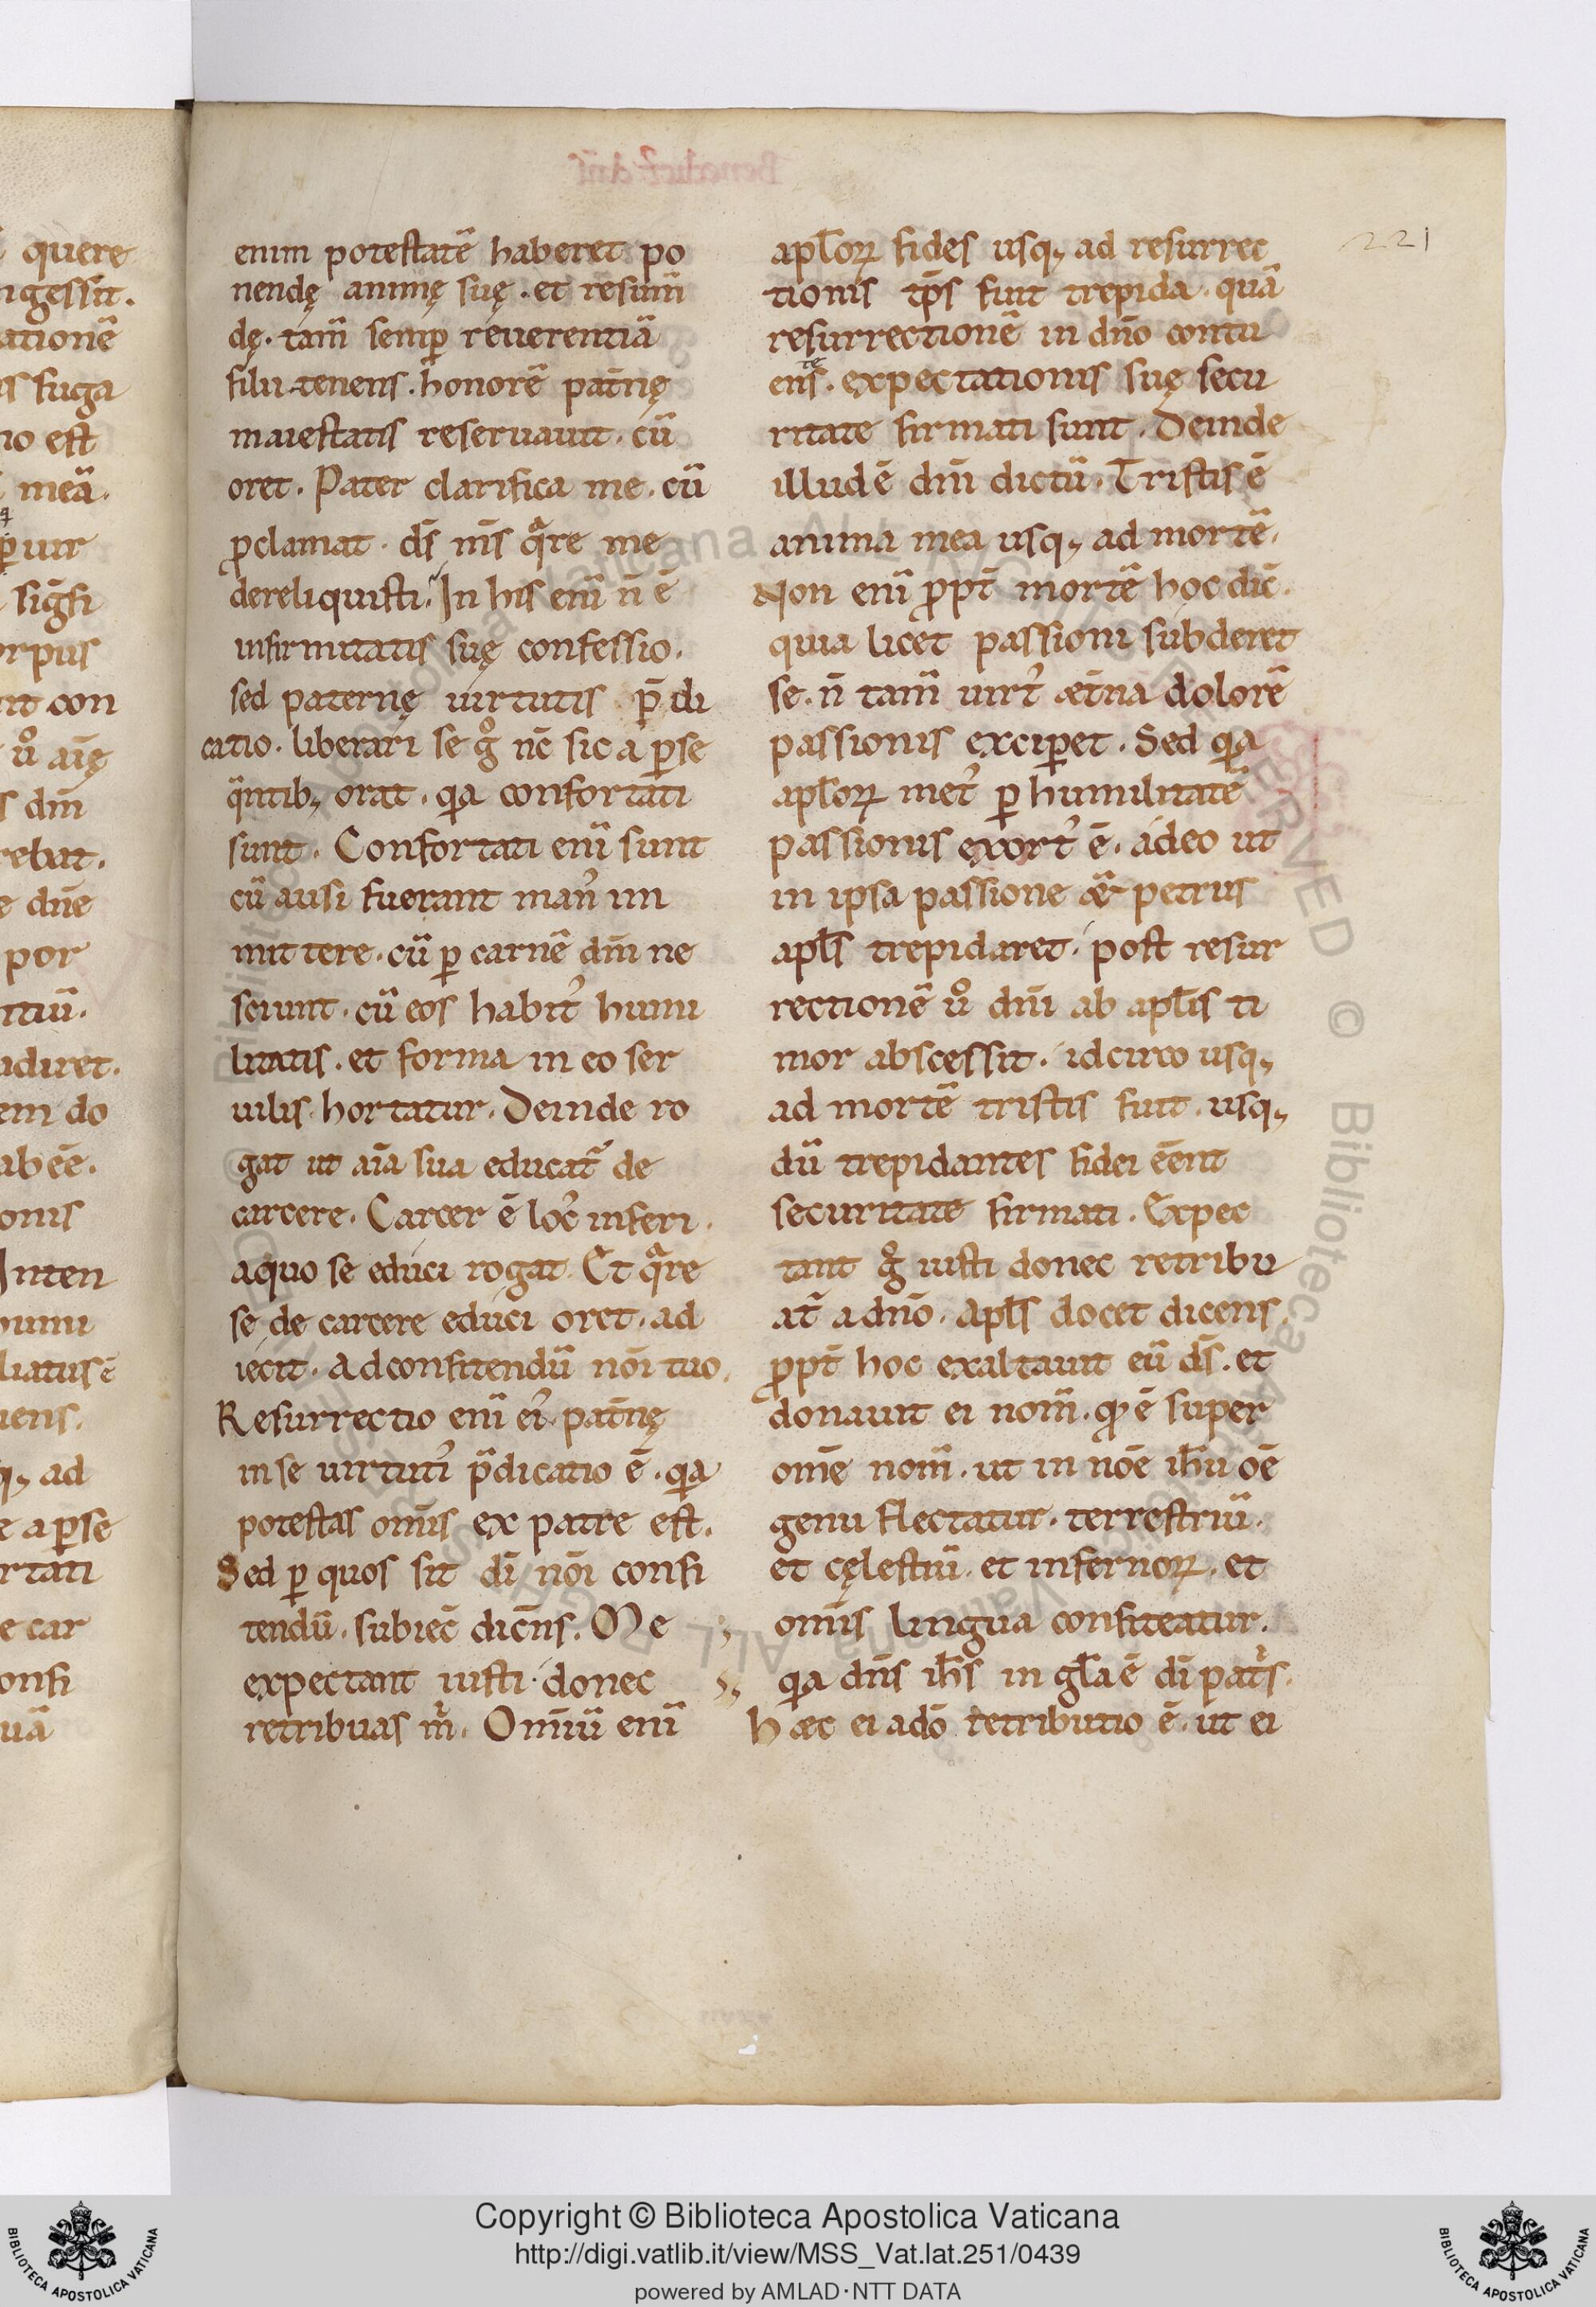 Benedict᷒ dn̄s
221
quere
ngessit.
ationē
is fuga
no est
meā.
ꝑuir
sigf̄i
orpus
it con
ů aīę
s dm̄
rebat.
e dn̄e
por
ntiū.
adiret.
em do
ab eē.
onis
Inten
humi
liatus ē
iens.
q; ad
e a ꝑse
rtati
e car
onfi
uā
enim potestatē haberet po
nendę animę suę. et resum̄
dę. tam̄ semꝑ reuerentiā
filii tenens. honorē pat̄nę
maiestatis reseruauit. cū
oret. Pater clarifica me. cū
ꝓclamat. ds̄ ms̄ qᷓre me
dereliquisti. In his enī n̄ ē
infirmitatis suę confessio.
sed paternę uirtutis p̄ di
catio. liberari se gͦ nc̄ sic a ꝑse
qᷓntib; orat. qa confortati
sunt. Confortati enī sunt
cū ausi fuerant man᷒ im
mit tere. cū ꝑ carnē dm̄ ne
sciunt. cū eos habit᷒ humi
litatis. et forma in eo ser
uilis hortatur. Deinde ro
gat ut aīa sua educat᷑ de
carcere. Carcer ē loc᷒ inferi.
a quo se educi rogat. Et qᷓre
se de carcere educi oret. ad
iecit. Ad confitendū nōi tuo.
Resurrectio enī ei᷒ pat̄nę
in se uirtuti᷒ p̄dicatio ē. qa
potestas omīs ex patre est.
Sed ꝑ quos sit dī nōi confi
tendū. subiec̄ dicn̄s. Me
expectant iusti. donec
retribuas m̊. Omniū enī
apl̄oꝝ fides usq; ad resurrec
tionis tp̄s fuit trepida. quā
resurrectionē in dn̄o contu
te
ens. expectationis suę secu
ritate firmati sunt. Deinde
illud ē dn̄i dictū. Tristis ē
anima mea usq; ad mortē.
Non enī ꝓpt̄ mortē hoc dic̄.
quia licet passioni subderet
se. n̄ tam̄ uirt᷒ æt̄na dolorē
passionis exciꝑet. Sed qa
apl̄oꝝ met᷒ ꝑ humilitatē
passionis exort᷒ ē. adeo ut
in ipsa passione & petrus
apl̄s trepidaret. post resur
rectionē ů dn̄i ab apl̄is ti
mor abscessit. idcirco usq;
ad mortē tristis fuit. usq;
dū trepidantes fidei eēnt
securitate firmati. Expec
tant gͦ iusti donec retribu
at᷑ a dn̄o. Apl̄s docet dicens.
ꝓpt̄ hoc exaltauit eū ds̄. et
donauit ei nom̄. qđ ē super
omē nom̄. ut in nōe ih̄u oē
genu flectatur. terrestriū.
et cęlestiū. et infernoꝝ. et
omīs lingua confiteatur.
qa dn̄s ih̄s in gl̄a ē dī pat̊s.
Hæc ei a dō retributio ē. ut ei
Copyright © Biblioteca Apostolica Vaticana
http://digi.vatlib.it/view/MSS_Vat.lat.251/0439
powered by AMLAD·NTT DATA
BIBLIOTECA APOSTOLICA VATICANA
BIBLIOTECA APOSTOLICA VATICANA